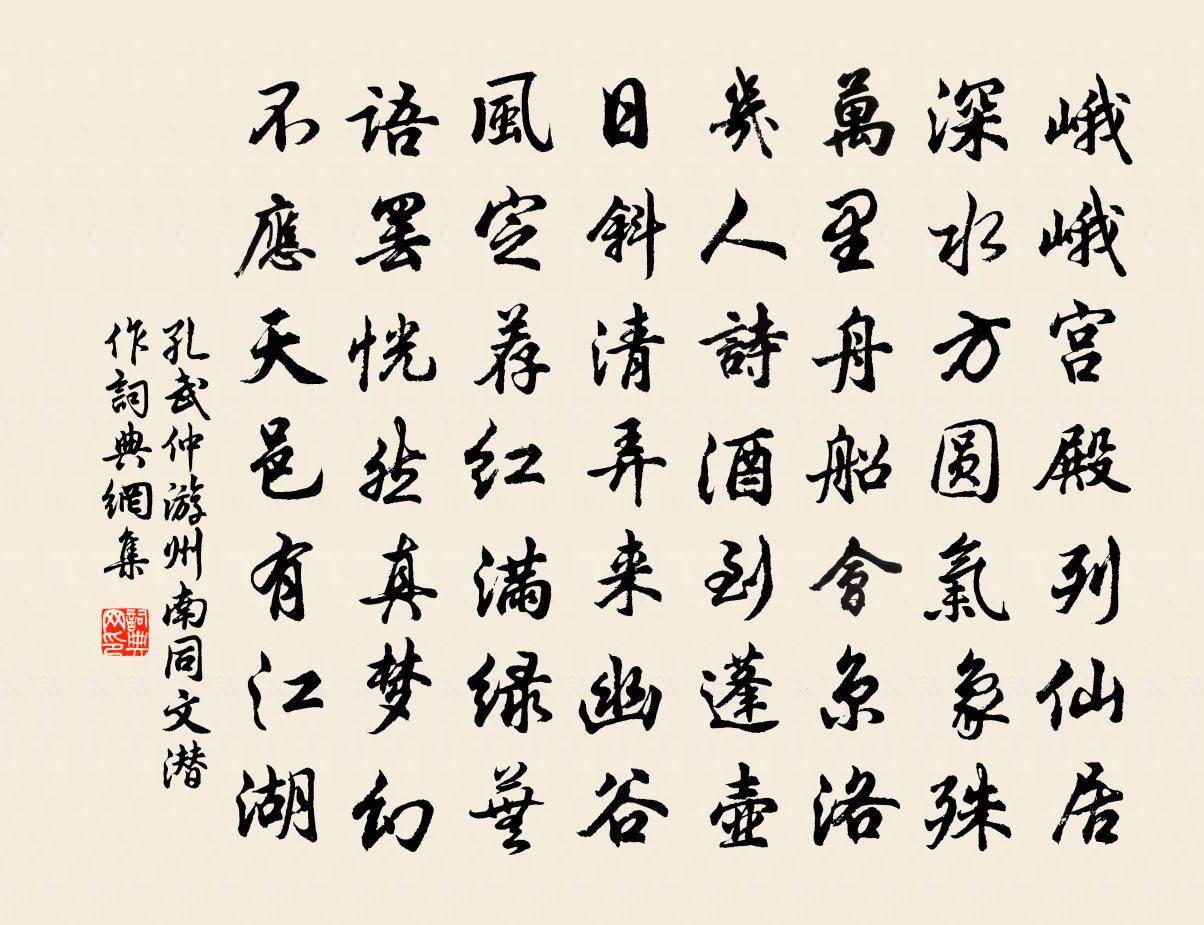 峨峨宫殿列仙居
深水方圆氣象殊
萬里舟船會京洛
幾人詩酒到蓬壺
日斜清弄来幽谷
風定荐红满绿蕪
語罢恍然真梦幻
不應天邑有江湖
孔武仲游州南同文潜
作詞典網集
詞典网印